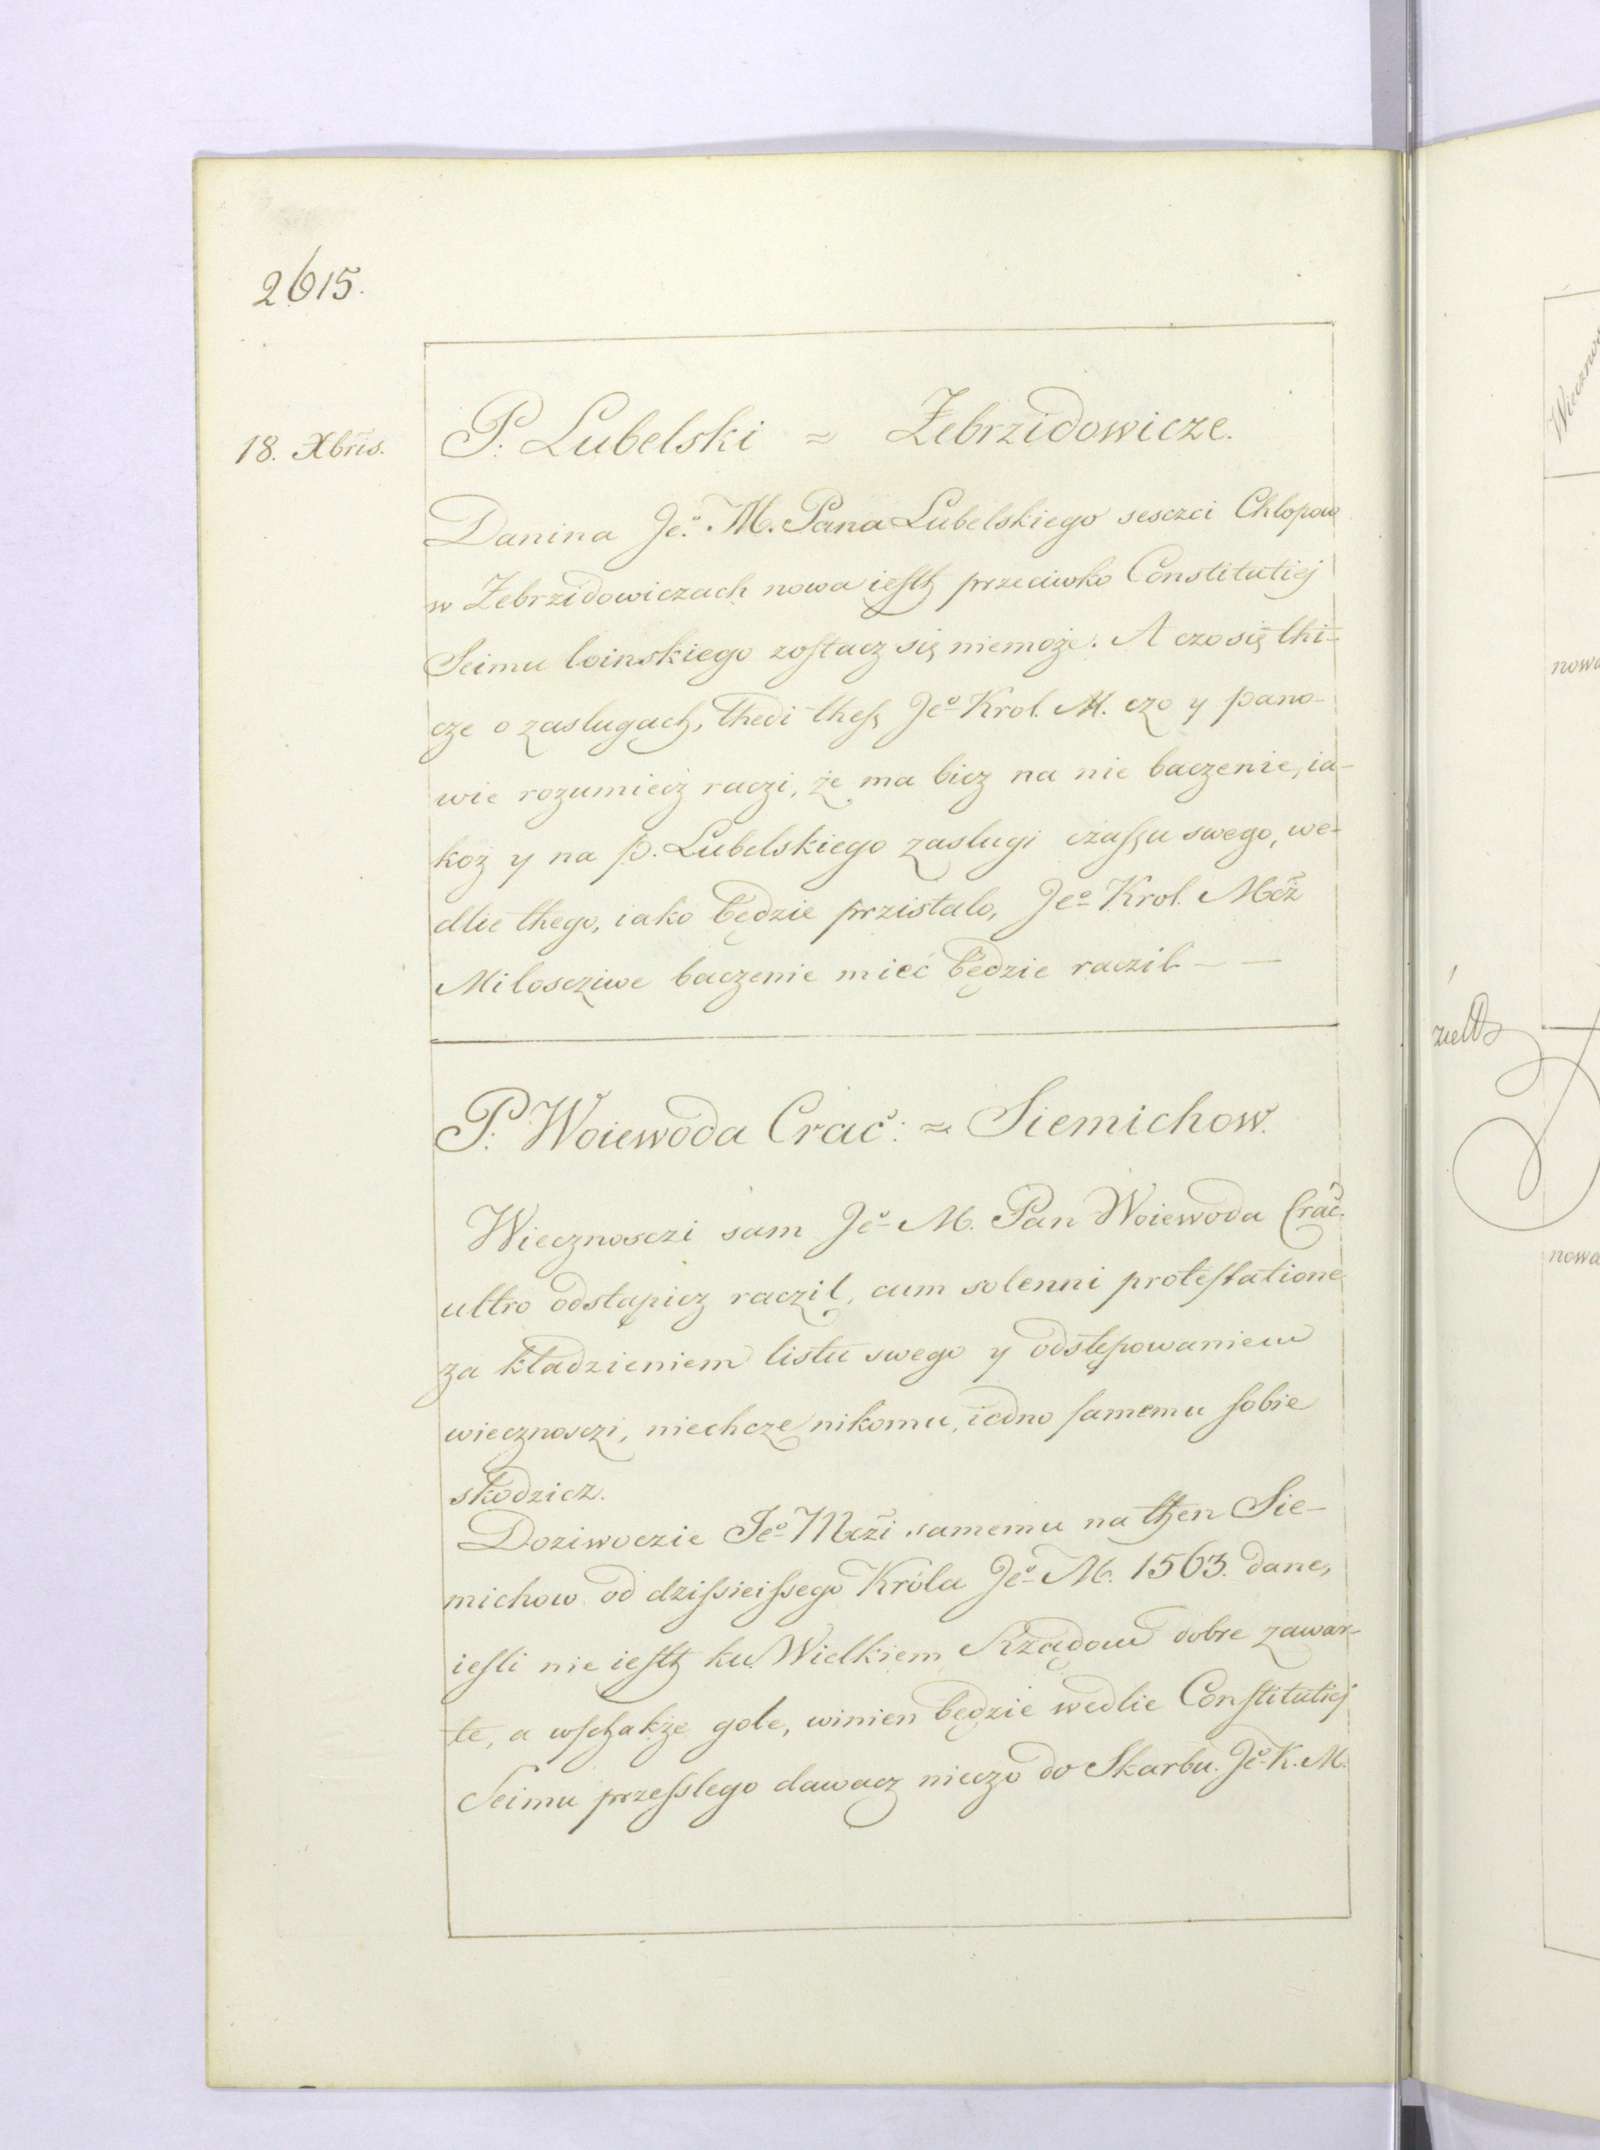 2615.
18. Xbris.
P. Lubelski ~ Zebrzidowicze.
Danina Jeo. M. Pana Lubelskiego sesczci Chlopow
w Zebrzidowiczach nowa iesth przeciwko Constitutiej
Seimu loinskiego zostacz się niemoże. A czo się thi-
cze o zaslugach, thedi thess Jeo Krol. M. czo y pano-
wie rozumiecz raczi, że ma bicz na nie baczenie, ia-
koz y na p. Lubelskiego zaslugi czassu swego, we-
dlie thego, iako będzie przistalo, Jeo Krol. Mcz
Milosciwe baczenie mieć będzie raczil — —
P. Woiewoda Crac: ~ Siemichow.
Wiecznosczi sam Jeo M. Pan Woiewoda Crac.
ultro odstąpicz raczil, cum solenni protestatione
za kładzieniem listu swego y odstępowaniem
wiecznosczi, niechcze nikomu, iedno samemu sobie
skodzicz.
Doziwoczie Jeo Mczi samemu na then Sie-
michow od dzissieissego Króla Jeo M. 1563. dane,
iesli nie iesth ku Wielkiem Rządom dobre zawar-
te, a wschakże gole, winien będzie wedlie Constitutiej
Seimu przesslego dawacz nieczo do Skarbu. Jeo K. M.
nowa
nowa